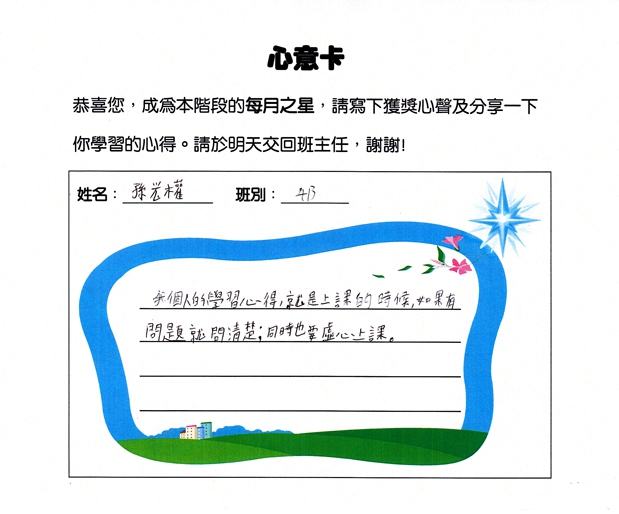 心意卡
恭喜您，成為本階段的每月之星，請寫下獲獎心聲及分享一下
你學習的心得。請於明天交回班主任，謝謝!
姓名：孫岩權 班別：4B
我個人的學習心得，就是上課的時候，如果有
問題就問清楚；同時也要虛心上課。